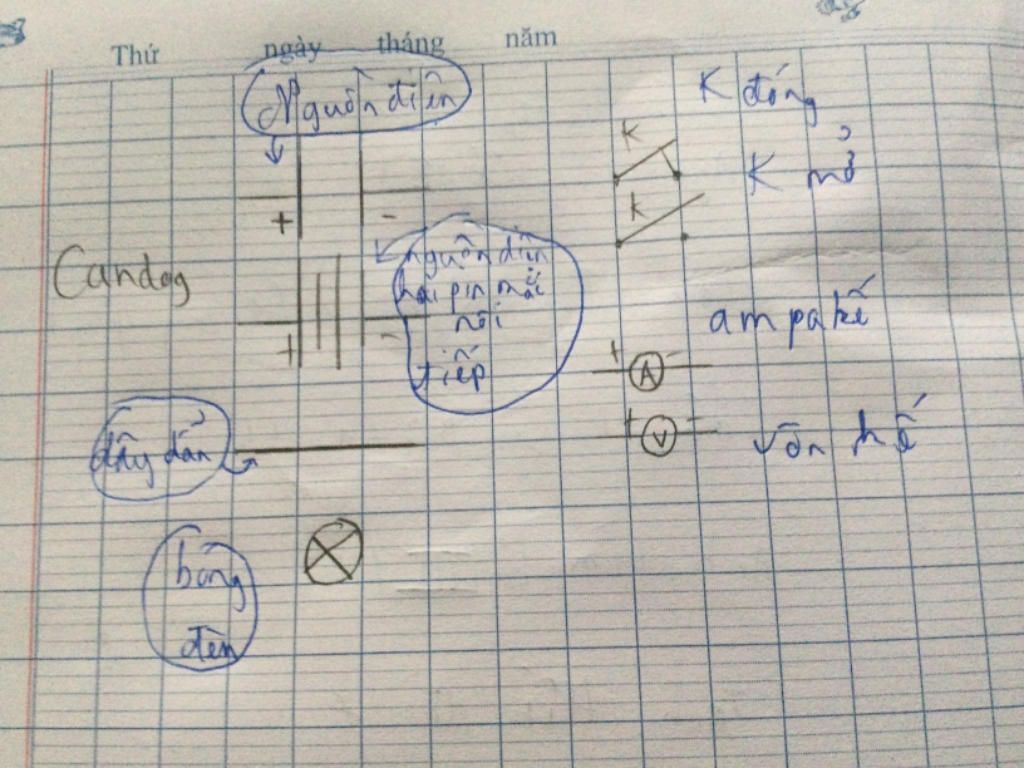 Thứ ngày tháng năm
Nguồn điện
+ -
nguồn điện
hai pin mắc
nối
tiếp
+ -
Candog
dây dẫn
bóng
đèn
K đóng
K
K mở
K
ampa kế
+ A -
+ V -
vôn kế